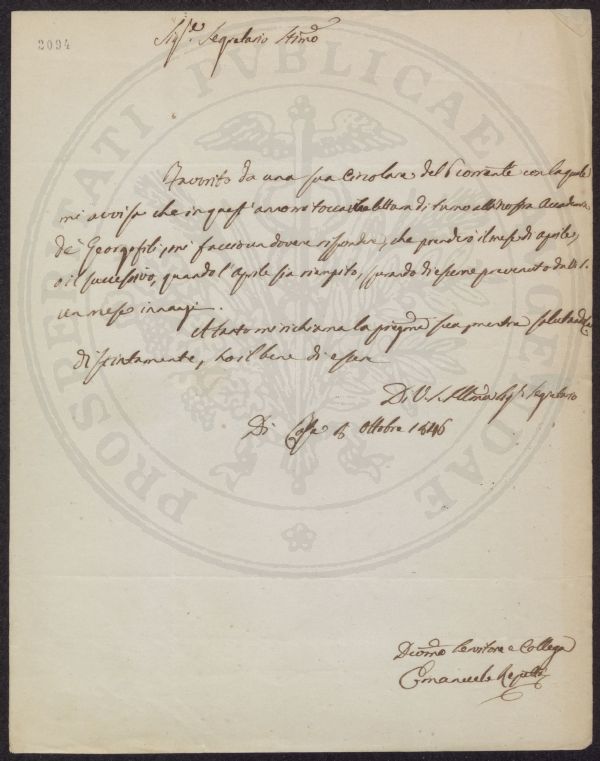 2094
Sig.re Segretario Stimo
PROSPERITATI PVBLICAE AVGENDAE
Favorito da una sua Circolare del 6 corrente con la quale
mi avvisa che in quest'anno mi tocca la lettura di turno alla nostra Accademia
de' Georgofili, mi faccio un dovere rispondere, che prenderò il mese di aprile,
o il successivo, quando l'Aprile sia riempito, sperando di esserne prevenuto da V. S.
un mese innanzi.
A tanto mi richiama la pregma sua, mentre salutandola
distintamente, ho il bene di essere
Di V. S. Illma Sig.re Segretario
Di Casa Ottobre 1846
Devmo Servitore e Collega
Emanuele Repetti